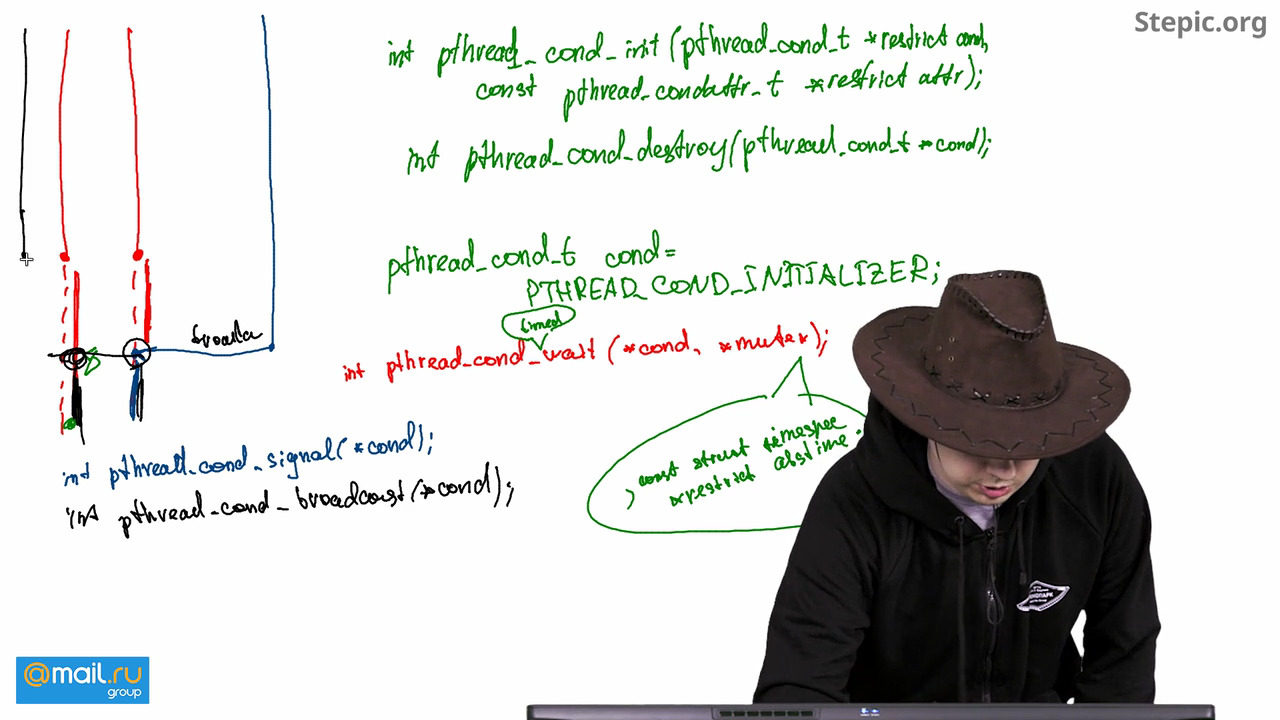 Stepic.org
int pthread_cond_init(pthread_cond_t *restrict cond,
const pthread_condattr_t *restrict attr);
int pthread_cond_destroy(pthread_cond_t *cond);
pthread_cond_t cond=
PTHREAD_COND_INITIALIZER;
timed
int pthread_cond_wait(*cond, *mutex);
broadca
, const struct timespec
*restrict abstime.
int pthread_cond_signal(*cond);
int pthread_cond_broadcast(*cond);
@mail.ru
group